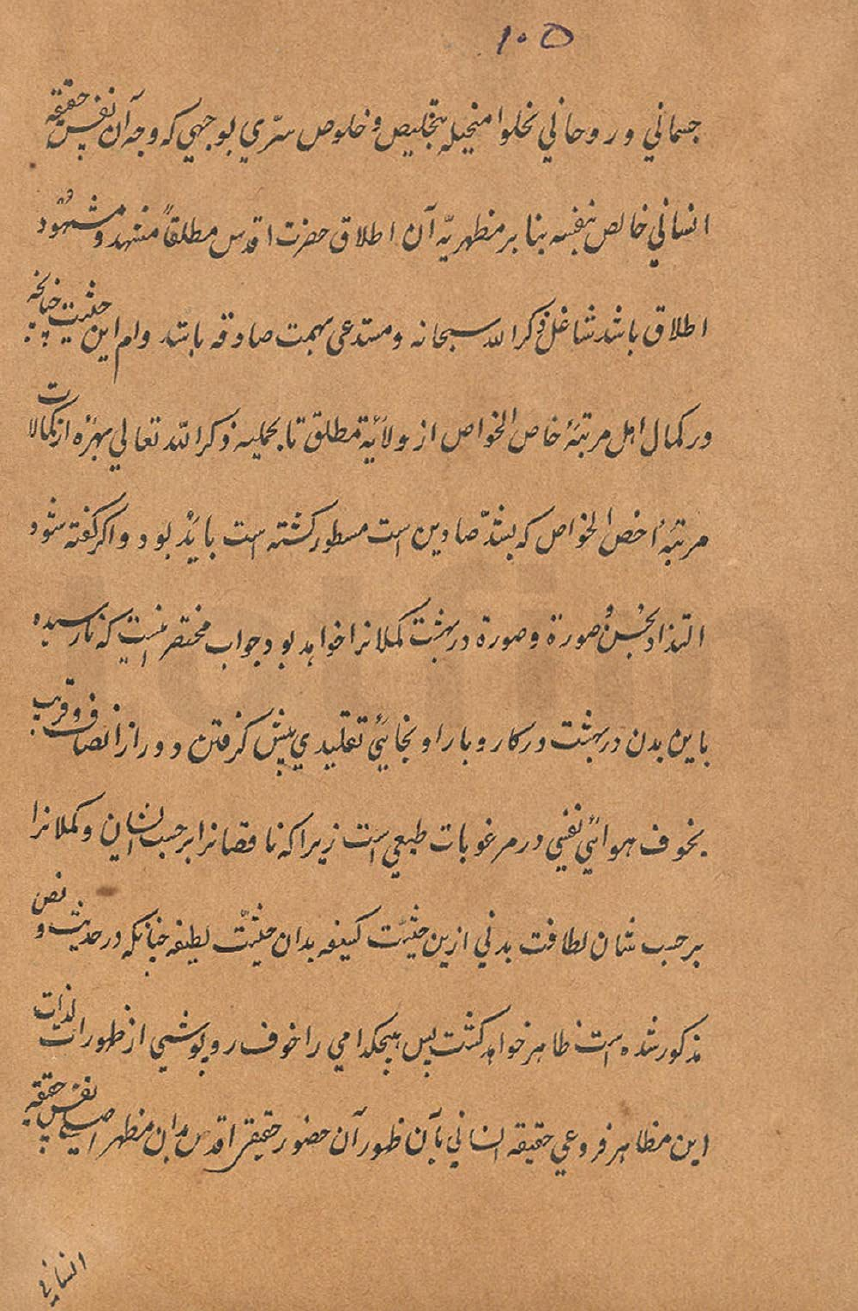 ۱۰۵
جسمانی و روحانی بخلوا متخیله بتخلیص و خلوص سری بوجهی که وجه آن نفس حقیقه
انسانی خالص بنفسه بنا بر مظهریّه آن اطلاق حضرت اقدس مطلقاً مشهد و مشهود
اطلاق باشد شاغل ذکر الله سبحانه و مستدعی بهمت صادقه باشد وام این حیثیت چنانچه
در کمال اهل مرتبهٔ خاص الخواص از ولایة مطلق تا بحملیه ذکر الله تعالی بهره از کمالات
مرتبهٔ اخص الخواص که بشدّ است مسطور کشته است باید بود و اکر کفته شود
التذاذ بحسن صورة و صورة در بهشت کملانرا خواهد بود جواب مختصر اینست که نارسیده
باین بدن در بهشت در کار و بار او بجایی تقلیدی پیش کرفتن دور از انصاف و قریب
بخوف هوائی نفسی در مرغوبات طبعی است زیرا که ناقصانرا بر حسب شان این و کملانرا
بر حسب شان لطافت بدنی ازین حیثیّت کثیفه بدان حیثیّت لطیفه چنانکه در حدیث و نص
مذکور شده است ظاهر خواهد کشت پس هیچکدامی را خوف روپوشی از ظهورات لذات
این مظاهر فروعی حقیقه انسانی بآن ظهور آن حضور حقیقی اقدس بدان مظهر اصلی نفس حقیقه
انسانی